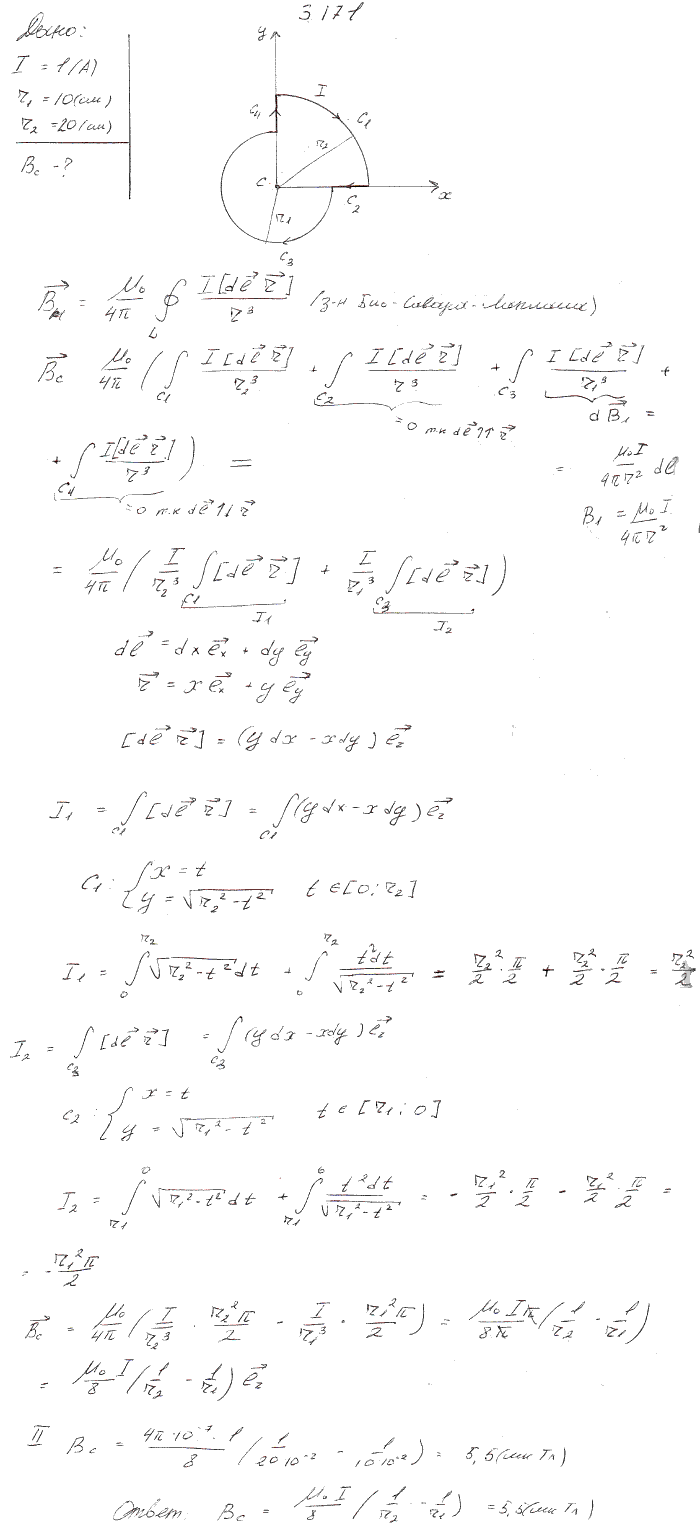 3.171
Дано:
I = 1(А)
r₁ = 10(см)
r₂ = 20(см)
B_c - ?
y
I
C₄
C₁
r₂
C
C₂
x
r₁
C₃
B⃗ = μ₀/4π ∮_L I[dl⃗ r⃗]/r³ (з-н Био-Савара-Лапласа)
B⃗_c μ₀/4π (∫_C₁ I[dl⃗ r⃗]/r₂³ + ∫_C₂ I[dl⃗ r⃗]/r³ + ∫_C₃ I[dl⃗ r⃗]/r₁³ +
=0 т.к dl⃗↑↑r⃗
dB⃗₁ =
+ ∫_C₄ I[dl⃗ r⃗]/r³) =
=0 т.к dl⃗↑↓r⃗
= μ₀I/4πr² dl
B₁ = μ₀I/4πr²
= μ₀/4π (I/r₂³ ∫_C₁ [dl⃗ r⃗] + I/r₁³ ∫_C₃ [dl⃗ r⃗])
I₁ I₂
dl⃗ = dx e⃗ₓ + dy e⃗_y
r⃗ = x e⃗ₓ + y e⃗_y
[dl⃗ r⃗] = (y dx - x dy) e⃗_z
I₁ = ∫_C₁ [dl⃗ r⃗] = ∫_C₁ (y dx - x dy) e⃗_z
C₁: { x = t
y = √(r₂² - t²) t ∈ [0; r₂]
I₁ = ∫₀^r₂ √(r₂² - t²) dt + ∫₀^r₂ t²dt/√(r₂² - t²) = r₂²/2 · π/2 + r₂²/2 · π/2 = r₂²/2
I₂ = ∫_C₃ [dl⃗ r⃗] = ∫_C₃ (y dx - x dy) e⃗_z
C₂: { x = t
y = √(r₁² - t²) t ∈ [r₁; 0]
I₂ = ∫_r₁^0 √(r₁² - t²) dt + ∫_r₁^0 t²dt/√(r₁² - t²) = - r₁²/2 · π/2 - r₁²/2 · π/2 =
= - r₁²π/2
B⃗_c = μ₀/4π (I/r₂³ · r₂²π/2 - I/r₁³ · r₁²π/2) = μ₀Iπ/8π (1/r₂ - 1/r₁)
= μ₀/8 I (1/r₂ - 1/r₁) e⃗_z
II B_c = 4π·10⁻⁷·1/8 (1/20·10⁻² - 1/10·10⁻²) = 5,5(мк Тл)
Ответ: B_c = μ₀I/8 (1/r₂ - 1/r₁) = 5,5(мк Тл)